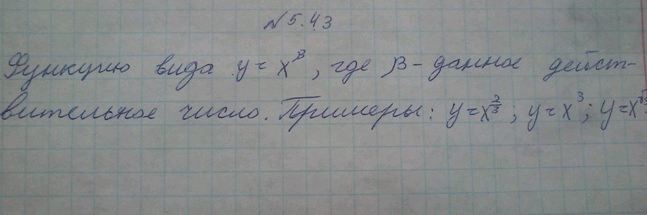 №5.43
Функцию вида y = x^β, где β - данное дейст-
вительное число. Примеры: y = x^{2/3}; y = x^3; y = x